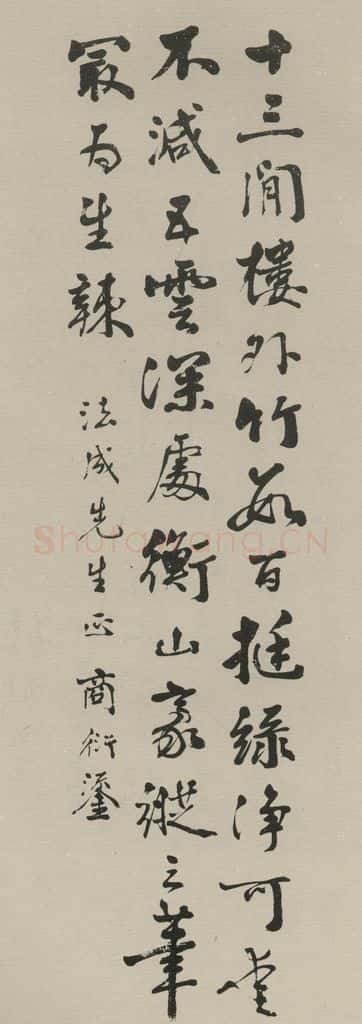 十三間樓外竹数百挺綠净可愛
不減五雲深處衡山豪縱之筆
冣為生辣
法成先生正 商衍鎏
Shufawang.CN